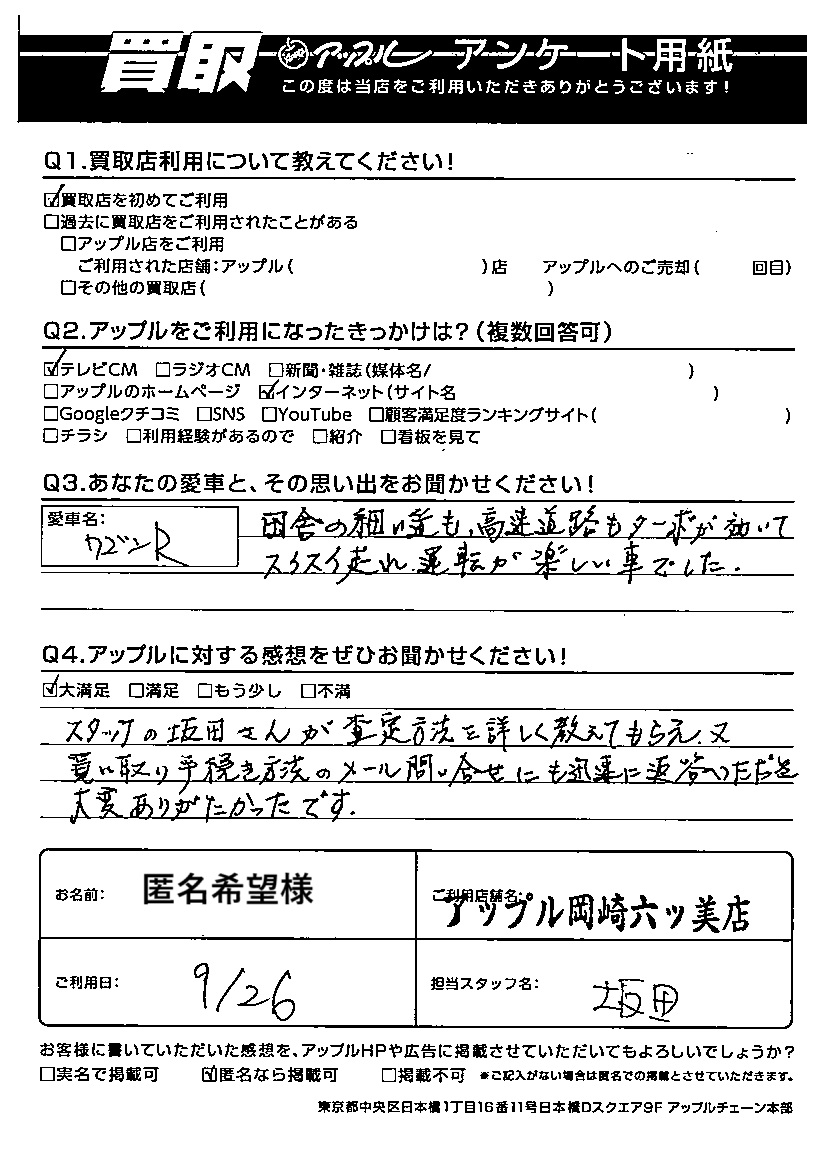 買取 アップル アンケート用紙
この度は当店をご利用いただきありがとうございます!
Q1.買取店利用について教えてください!
☑買取店を初めてご利用
□過去に買取店をご利用されたことがある
□アップル店をご利用
ご利用された店舗:アップル( )店 アップルへのご売却( 回目)
□その他の買取店( )
Q2.アップルをご利用になったきっかけは?(複数回答可)
☑テレビCM □ラジオCM □新聞・雑誌(媒体名/ )
□アップルのホームページ ☑インターネット(サイト名 )
□Googleクチコミ □SNS □YouTube □顧客満足度ランキングサイト( )
□チラシ □利用経験があるので □紹介 □看板を見て
Q3.あなたの愛車と、その思い出をお聞かせください!
愛車名:
ワゴンR
田舎の細い道も、高速道路もターボが効いて
スイスイ走れ、運転が楽しい車でした.
Q4.アップルに対する感想をぜひお聞かせください!
☑大満足 □満足 □もう少し □不満
スタッフの坂田さんが査定方法を詳しく教えてもらえ、又
買い取り手続き方法のメール問い合せにも迅速に返答いただき
大変ありがたかったです.
お名前: 匿名希望様 ご利用店舗名: アップル岡崎六ッ美店
ご利用日: 9/26 担当スタッフ名: 坂田
お客様に書いていただいた感想を、アップルHPや広告に掲載させていただいてもよろしいでしょうか?
□実名で掲載可 ☑匿名なら掲載可 □掲載不可 *ご記入がない場合は匿名での掲載とさせていただきます。
東京都中央区日本橋1丁目16番11号日本橋Dスクエア9F アップルチェーン本部